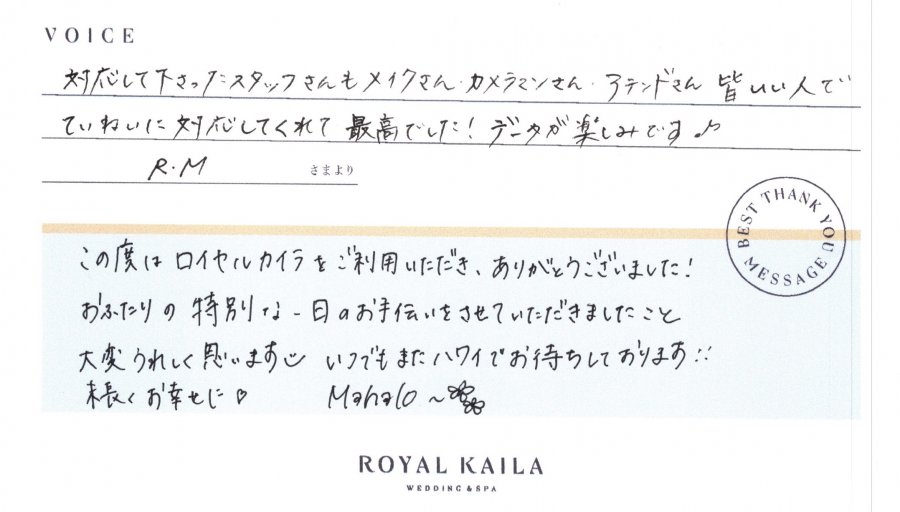 VOICE
対応して下さったスタッフさんもメイクさん・カメラマンさん・アテンドさん 皆いい人で
ていねいに対応してくれて 最高でした！データが楽しみです♪
R.M さまより
BEST THANK YOU MESSAGE
この度はロイヤルカイラをご利用いただき、ありがとうございました！
おふたりの特別な一日のお手伝いをさせていただきましたこと
大変うれしく思います いつでもまたハワイでお待ちしております！！
末長くお幸せに♡ Mahalo～
ROYAL KAILA
WEDDING & SPA